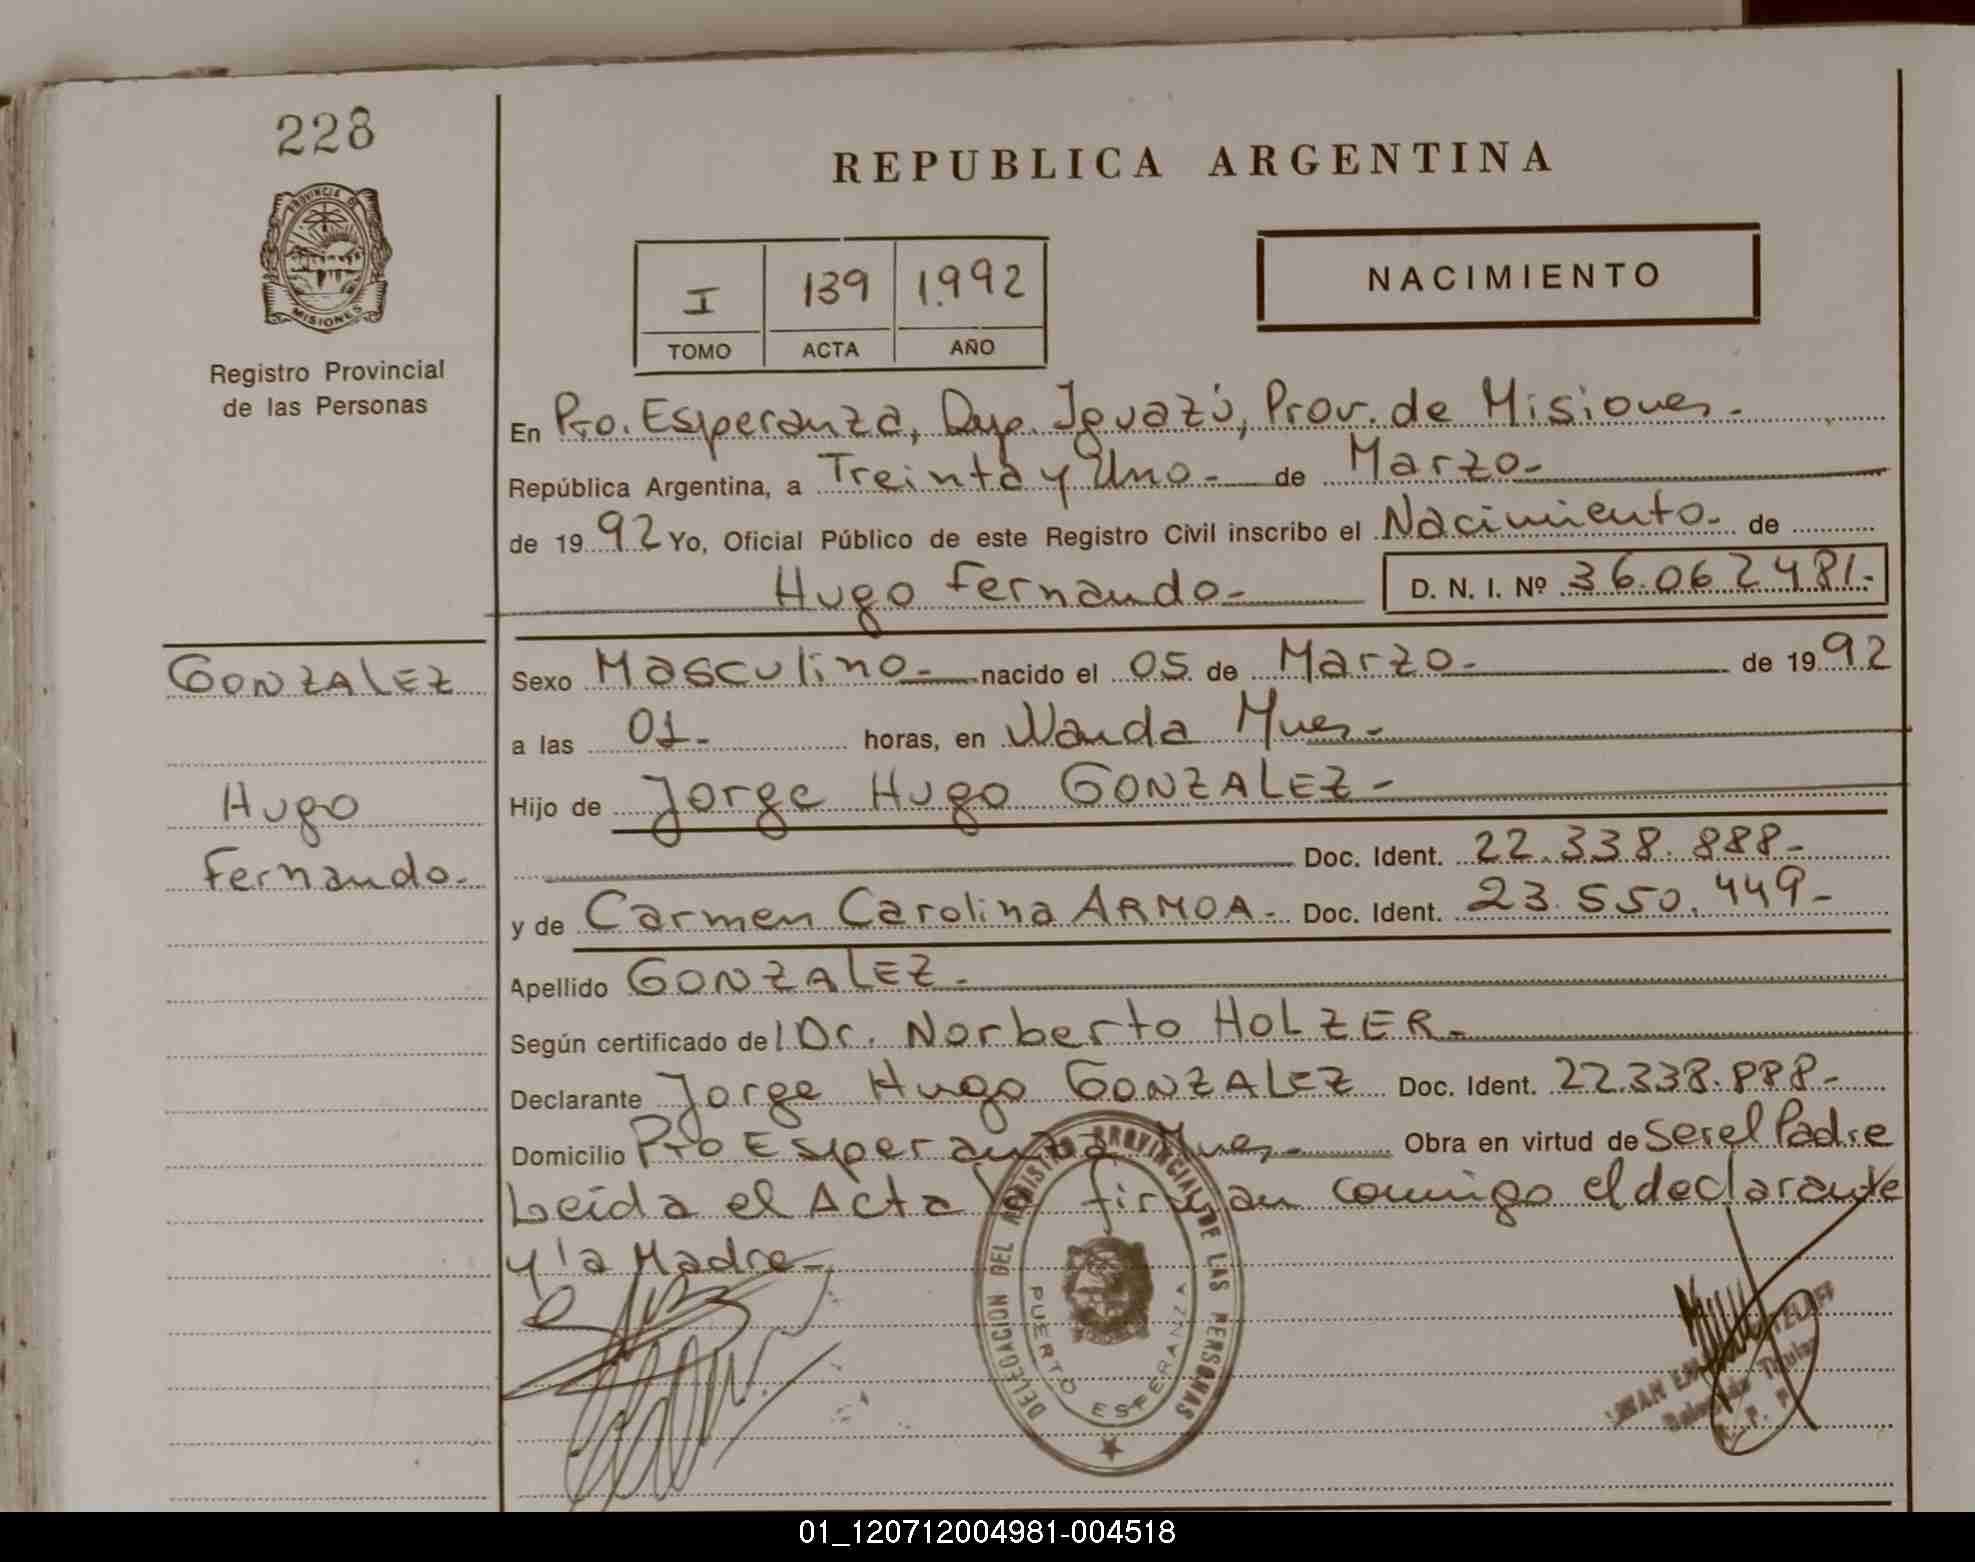 228
REPUBLICA ARGENTINA
PROVINCIA DE
MISIONES
Registro Provincial
de las Personas
I 139 1.992
TOMO ACTA AÑO
NACIMIENTO
En Pto. Esperanza, Dep. Iguazú, Prov. de Misiones.-
República Argentina, a Treinta y Uno.- de Marzo.-
de 1992 Yo, Oficial Público de este Registro Civil inscribo el Nacimiento.- de
Hugo Fernando.- D. N. I. Nº 36.062481.-
GONZALEZ
Sexo Masculino.- nacido el 05 de Marzo.- de 1992
a las 01.- horas, en Wanda Mnes.-
Hugo
Hijo de Jorge Hugo GONZALEZ-
Fernando.-
Doc. Ident. 22.338.888-
y de Carmen Carolina ARMOA- Doc. Ident. 23.550.449-
Apellido GONZALEZ.-
Según certificado del Dr. Norberto HOLZER.-
Declarante Jorge Hugo GONZALEZ Doc. Ident. 22.338.888-
Domicilio Pto Esperanza Mnes.- Obra en virtud de Ser el Padre
Leída el Acta la firman conmigo el declarante
y la Madre-
DELEGACION DEL REGISTRO PROVINCIAL DE LAS PERSONAS
PUERTO ESPERANZA
Titular
01_120712004981-004518